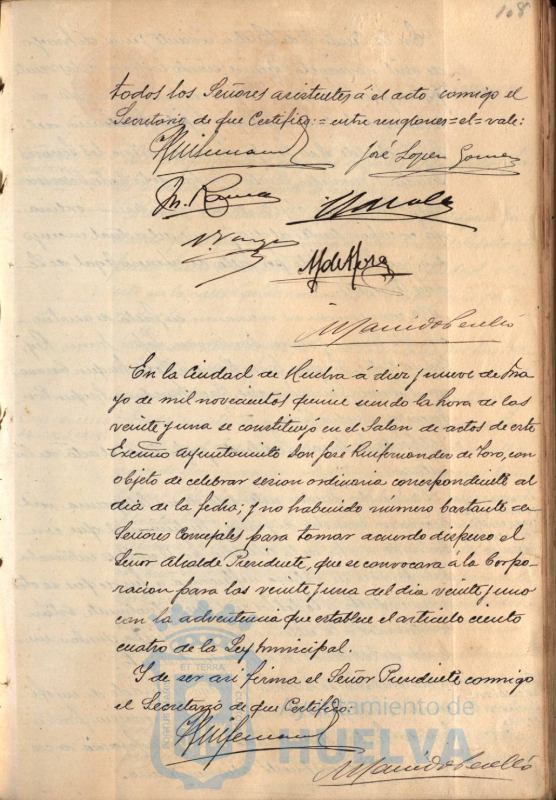 108
todos los Señores asistentes á el acto, comigo el
Secretario de que Certifico:=entre renglones=el=vale:
José Lopez Gomez
M. de Mora
En la Ciudad de Huelva á diez y nueve de Ma
yo de mil novecientos quince siendo la hora de las
veinte y una se constituyó en el Salon de actos de este
Excmo Ayuntamiento Don José Ruifernandez de Toro, con
objeto de celebrar sesion ordinaria correspondiente al
dia de la fecha; y no habiendo número bastante de
Señores Concejales para tomar acuerdo dispuso el
Señor Alcalde Presidente, que se convocara á la Corpo-
racion para las veinte y una del dia veinte y uno
con la advertencia que establece el articulo ciento
cuatro de la Ley Municipal.
Y de ser asi firma el Señor Presidente, conmigo
el Secretario de que Certifico.
ET TERRA
Ayuntamiento de
HUELVA